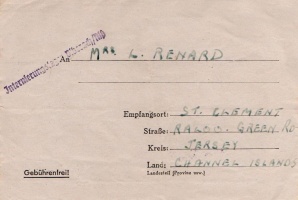 Internierungslager Biberach/Riß
An Mrs L. RENARD
Empfangsort: ST. CLEMENT
Straße: GREEN RD
Kreis: JERSEY
Land: CHANNEL ISLANDS
Landesteil (Provinz usw.)
Gebührenfrei!